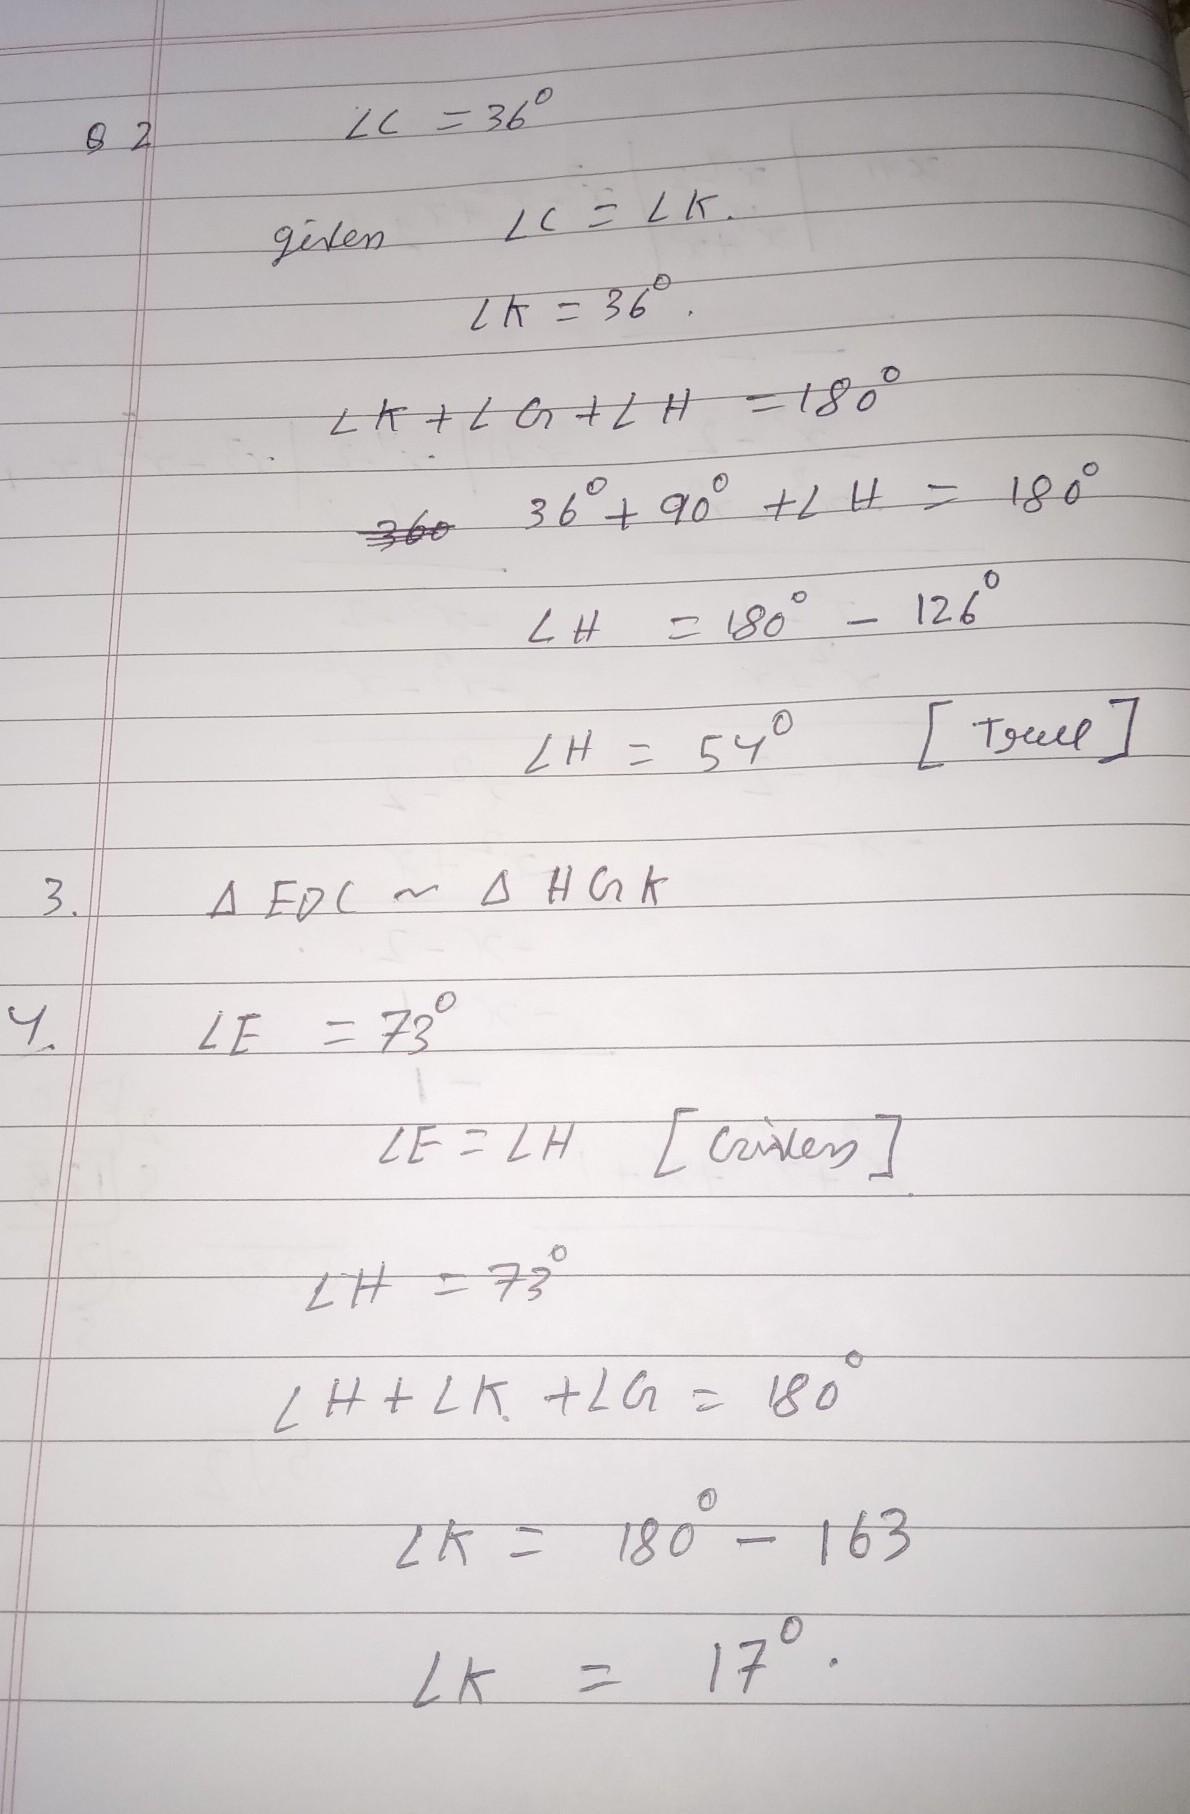 Q 2 ∠C = 36°
given ∠C = ∠K.
∠K = 36°.
∠K + ∠G + ∠H = 180°
36° + 90° + ∠H = 180°
∠H = 180° - 126°
∠H = 54° [True]
3. Δ EDC ~ Δ HGK
4. ∠E = 73°
∠E = ∠H [Given]
∠H = 73°
∠H + ∠K + ∠G = 180°
∠K = 180° - 163
∠K = 17°.